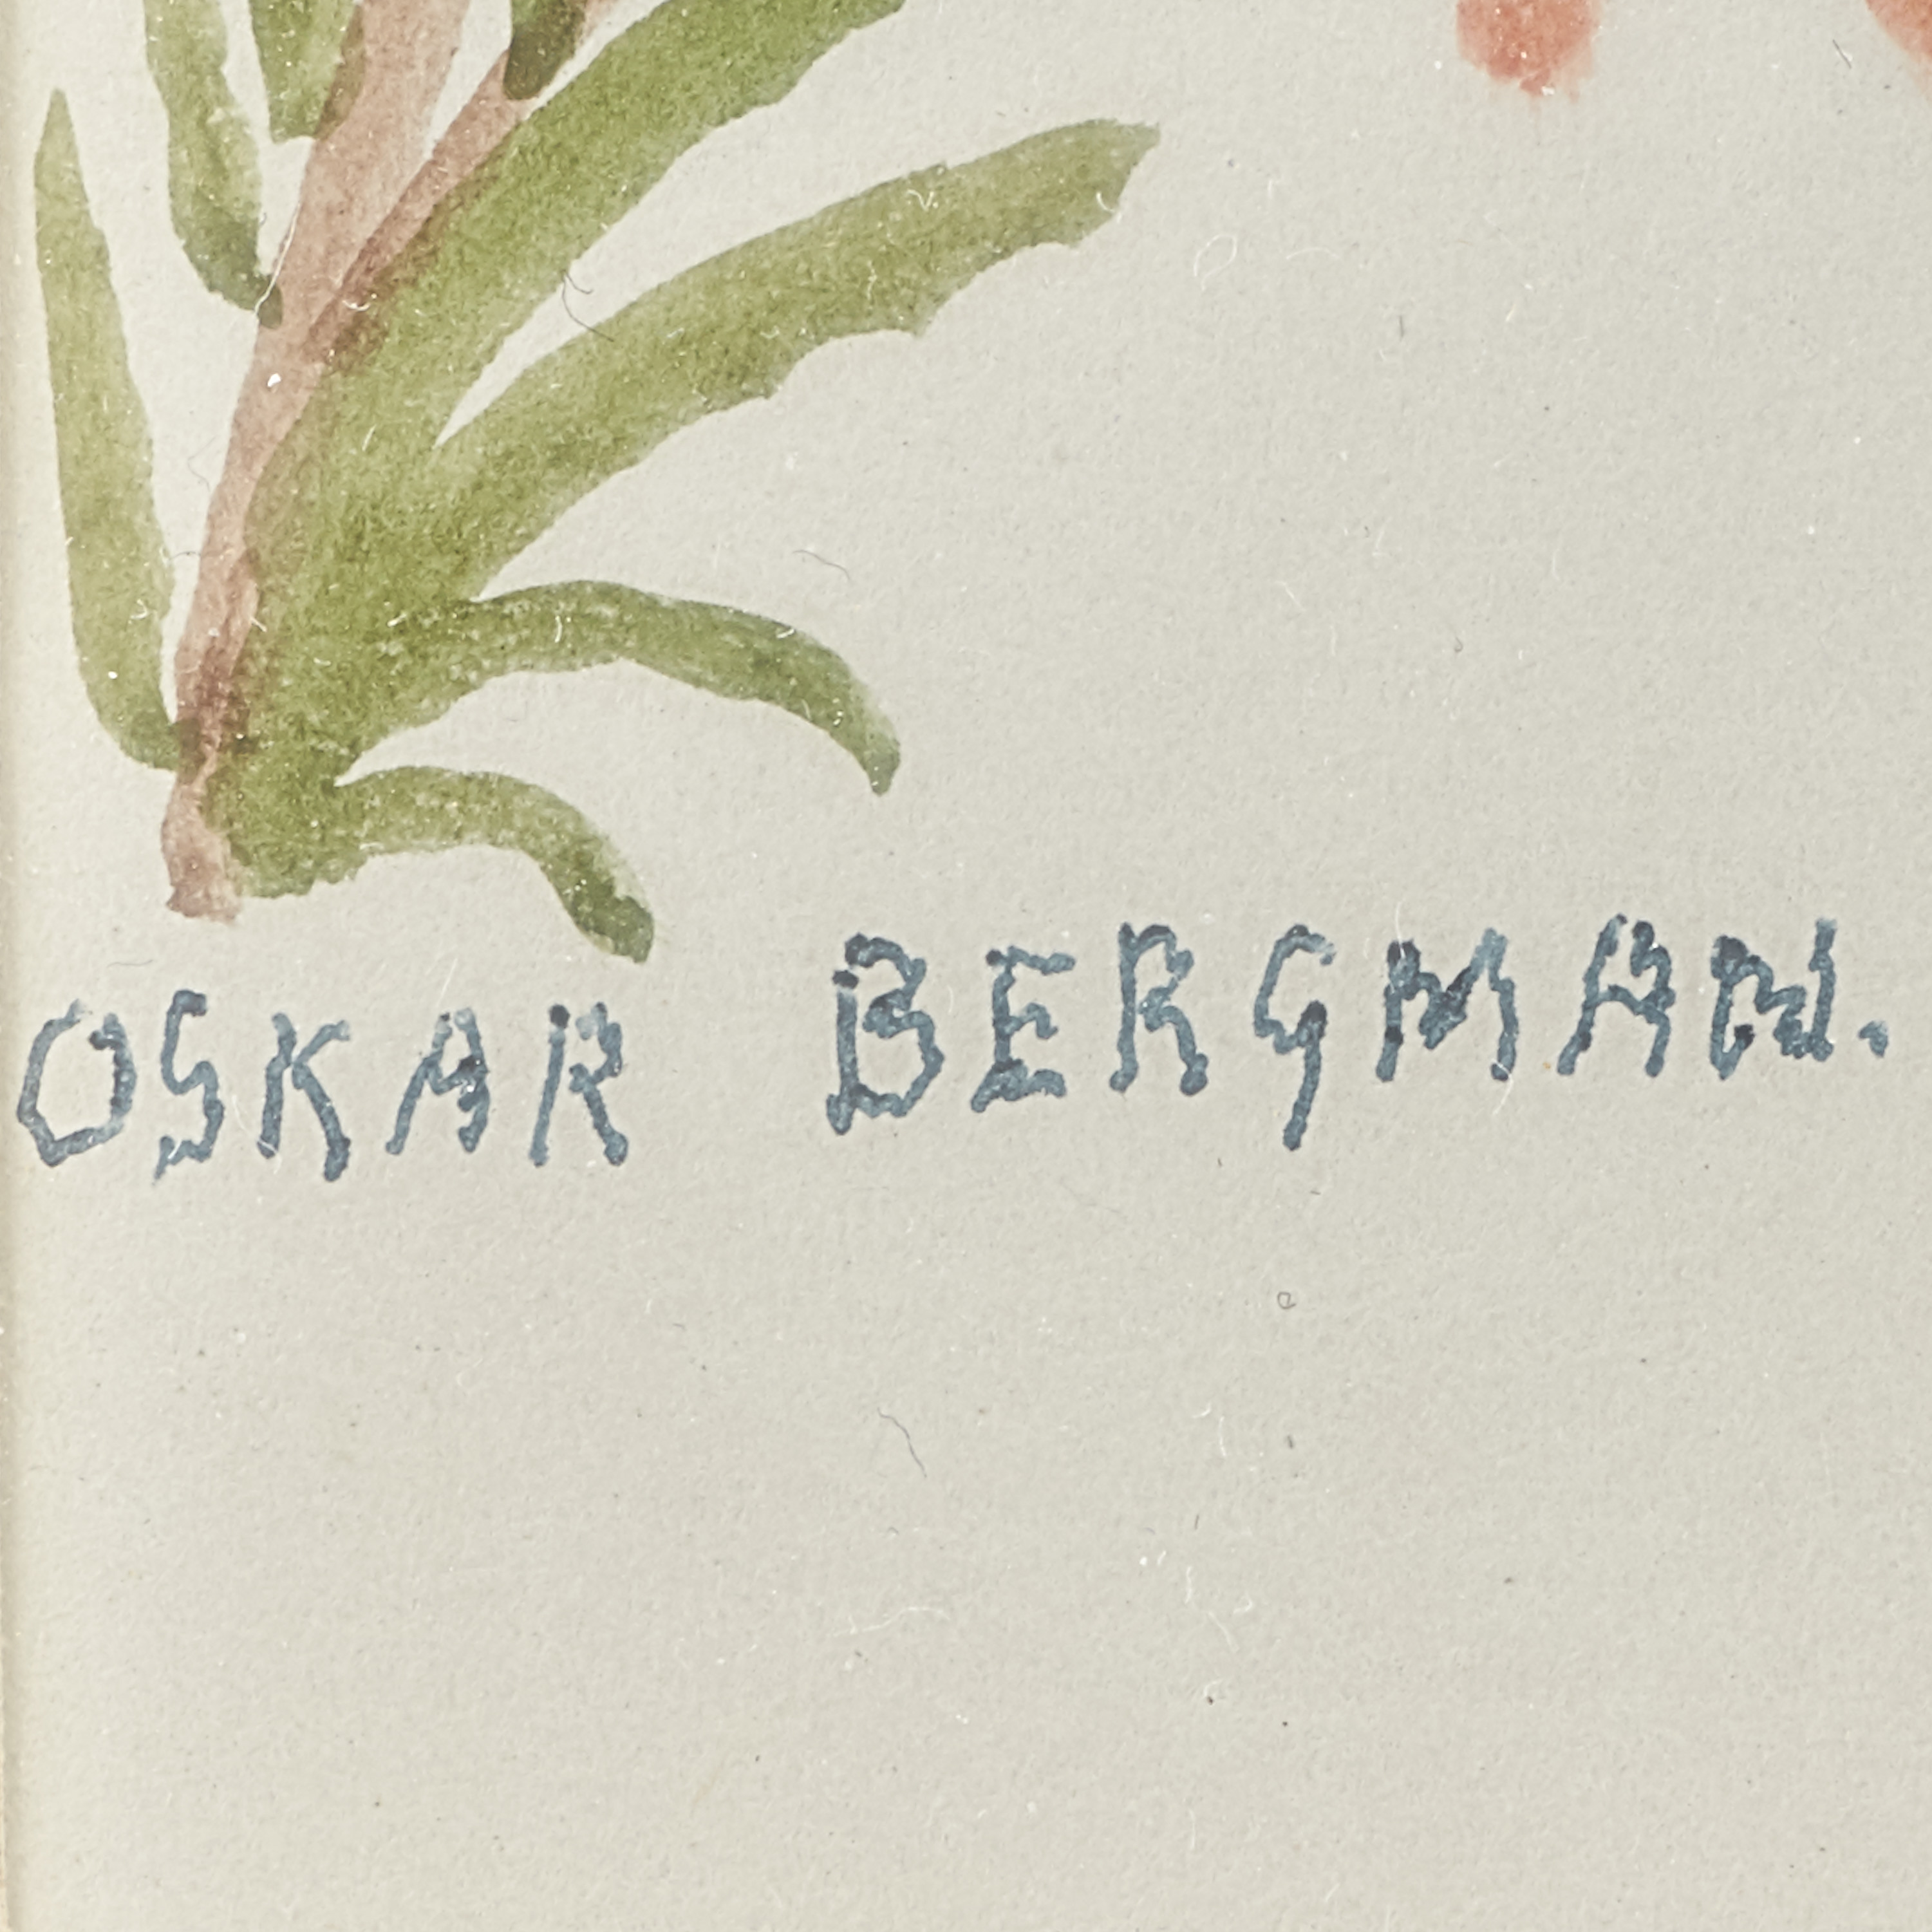 OSKAR BERGMAN.